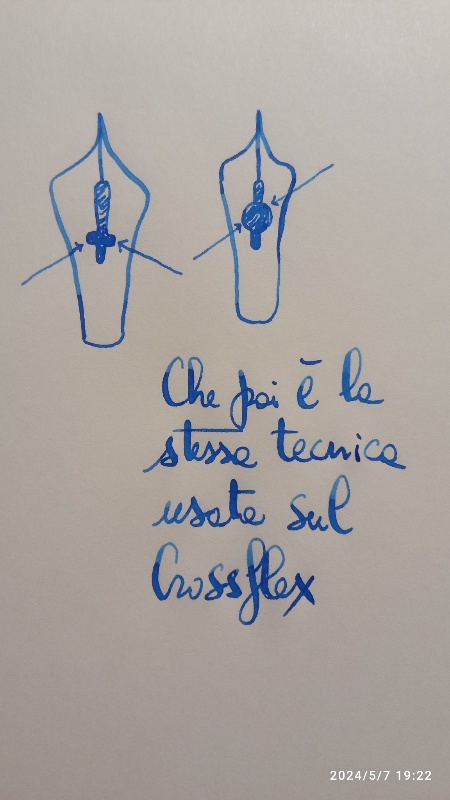 Che poi è la
stessa tecnica
usata sul
Crossflex
2024/5/7 19:22